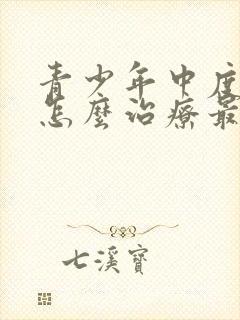 青少年中度
怎麼治療最
七溪寶